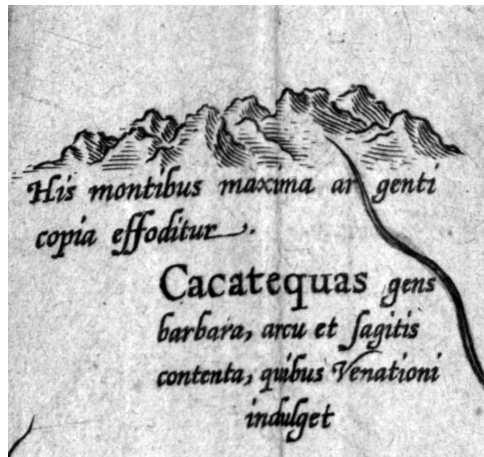 His montibus maxima ar genti
copia effoditur.
Cacatequas gens
barbara, arcu et sagitis
contenta, quibus Venationi
indulget